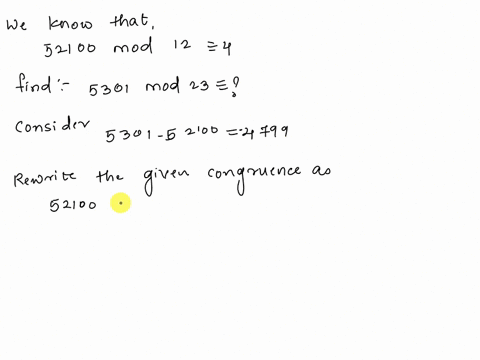 We know that,
52100 mod 12 ≡ 4
find :- 5301 mod 23 ≡ ?
Consider 5301 - 52100 = -4799
Rewrite the given congruence as
52100